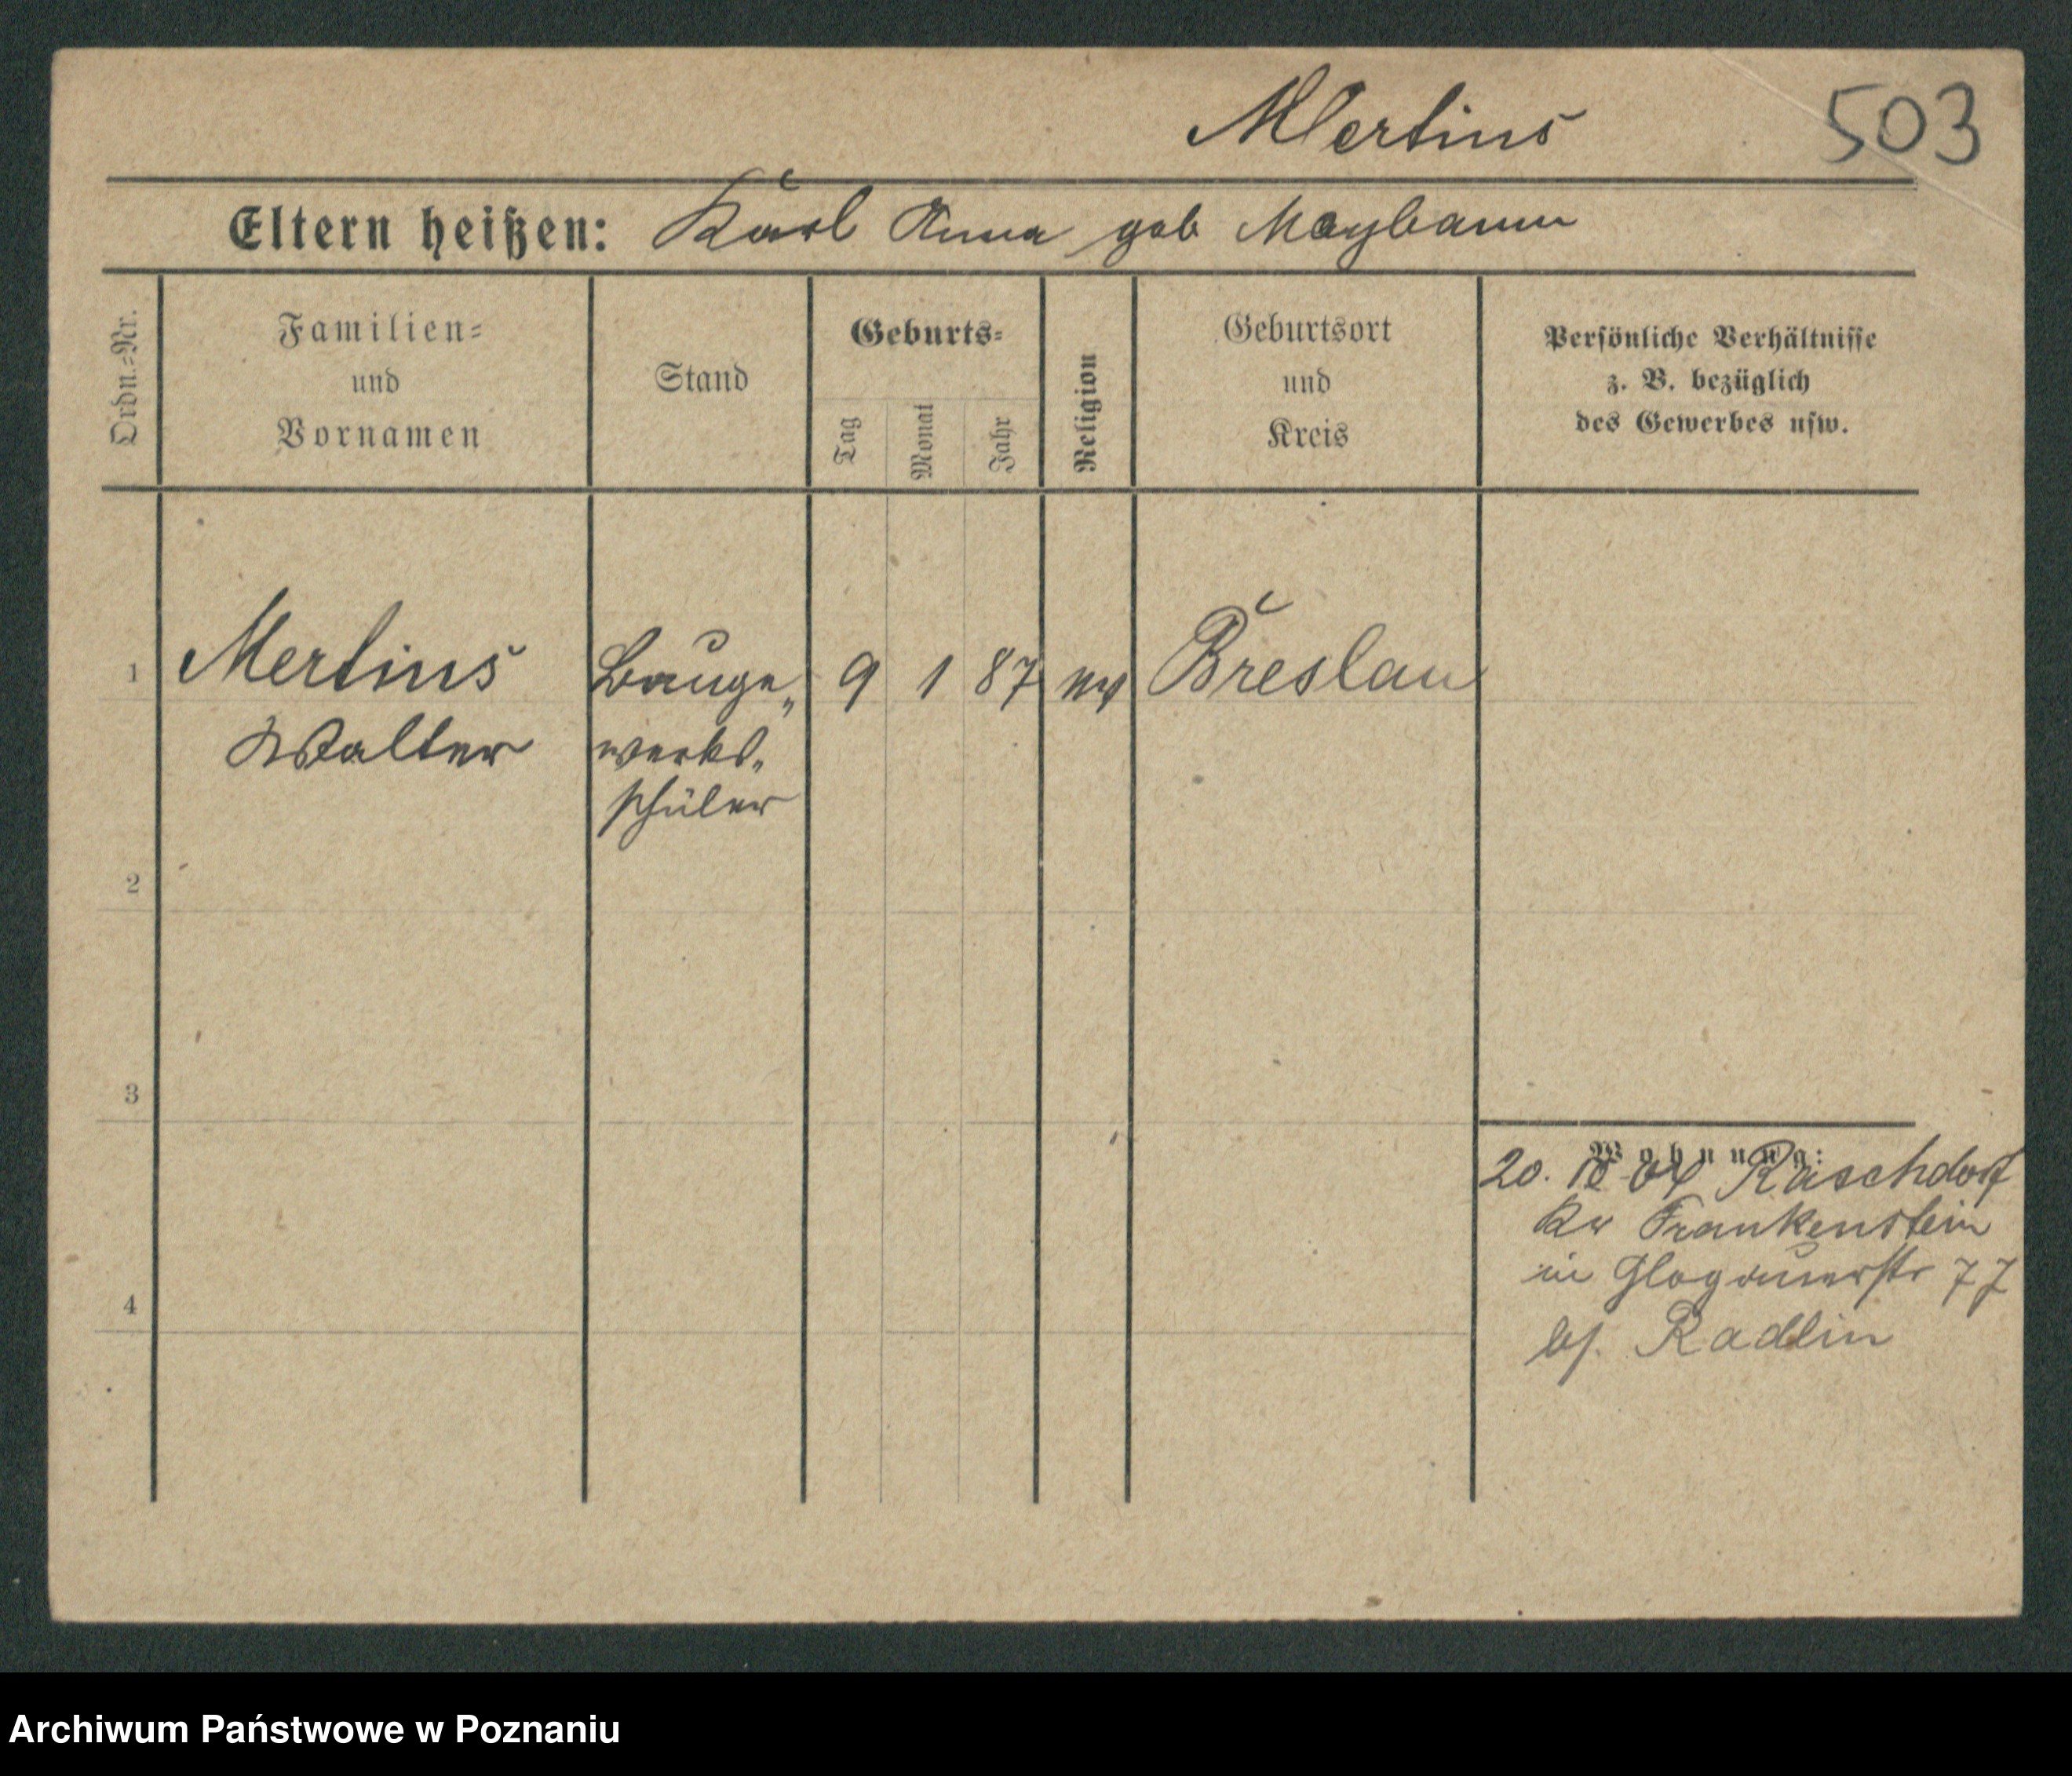 Mertins
503
Eltern heißen: Karl Anna geb Maybaum
Ordn.=Nr.
Familien=
und
Vornamen
Stand
Geburts=
Tag
Monat
Jahr
Religion
Geburtsort
und
Kreis
Persönliche Verhältnisse
z. B. bezüglich
des Gewerbes usw.
1 Mertins Bauge„ 9 1 87 ev Breslau
Walter werks„
schüler
2
3
4
Wohnung:
20. 10 04 Raschdorf
Kr Frankenstein
in Glogauerstr 77
bf. Radlin
Archiwum Państwowe w Poznaniu